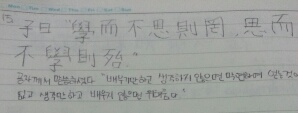 15
子曰 "學而不思則罔, 思而
不學則殆."
공자께서 말씀하셨다. "배우기만 하고 생각하지 않으면
없고 생각만 하고 배우지 않으면 위태롭다."